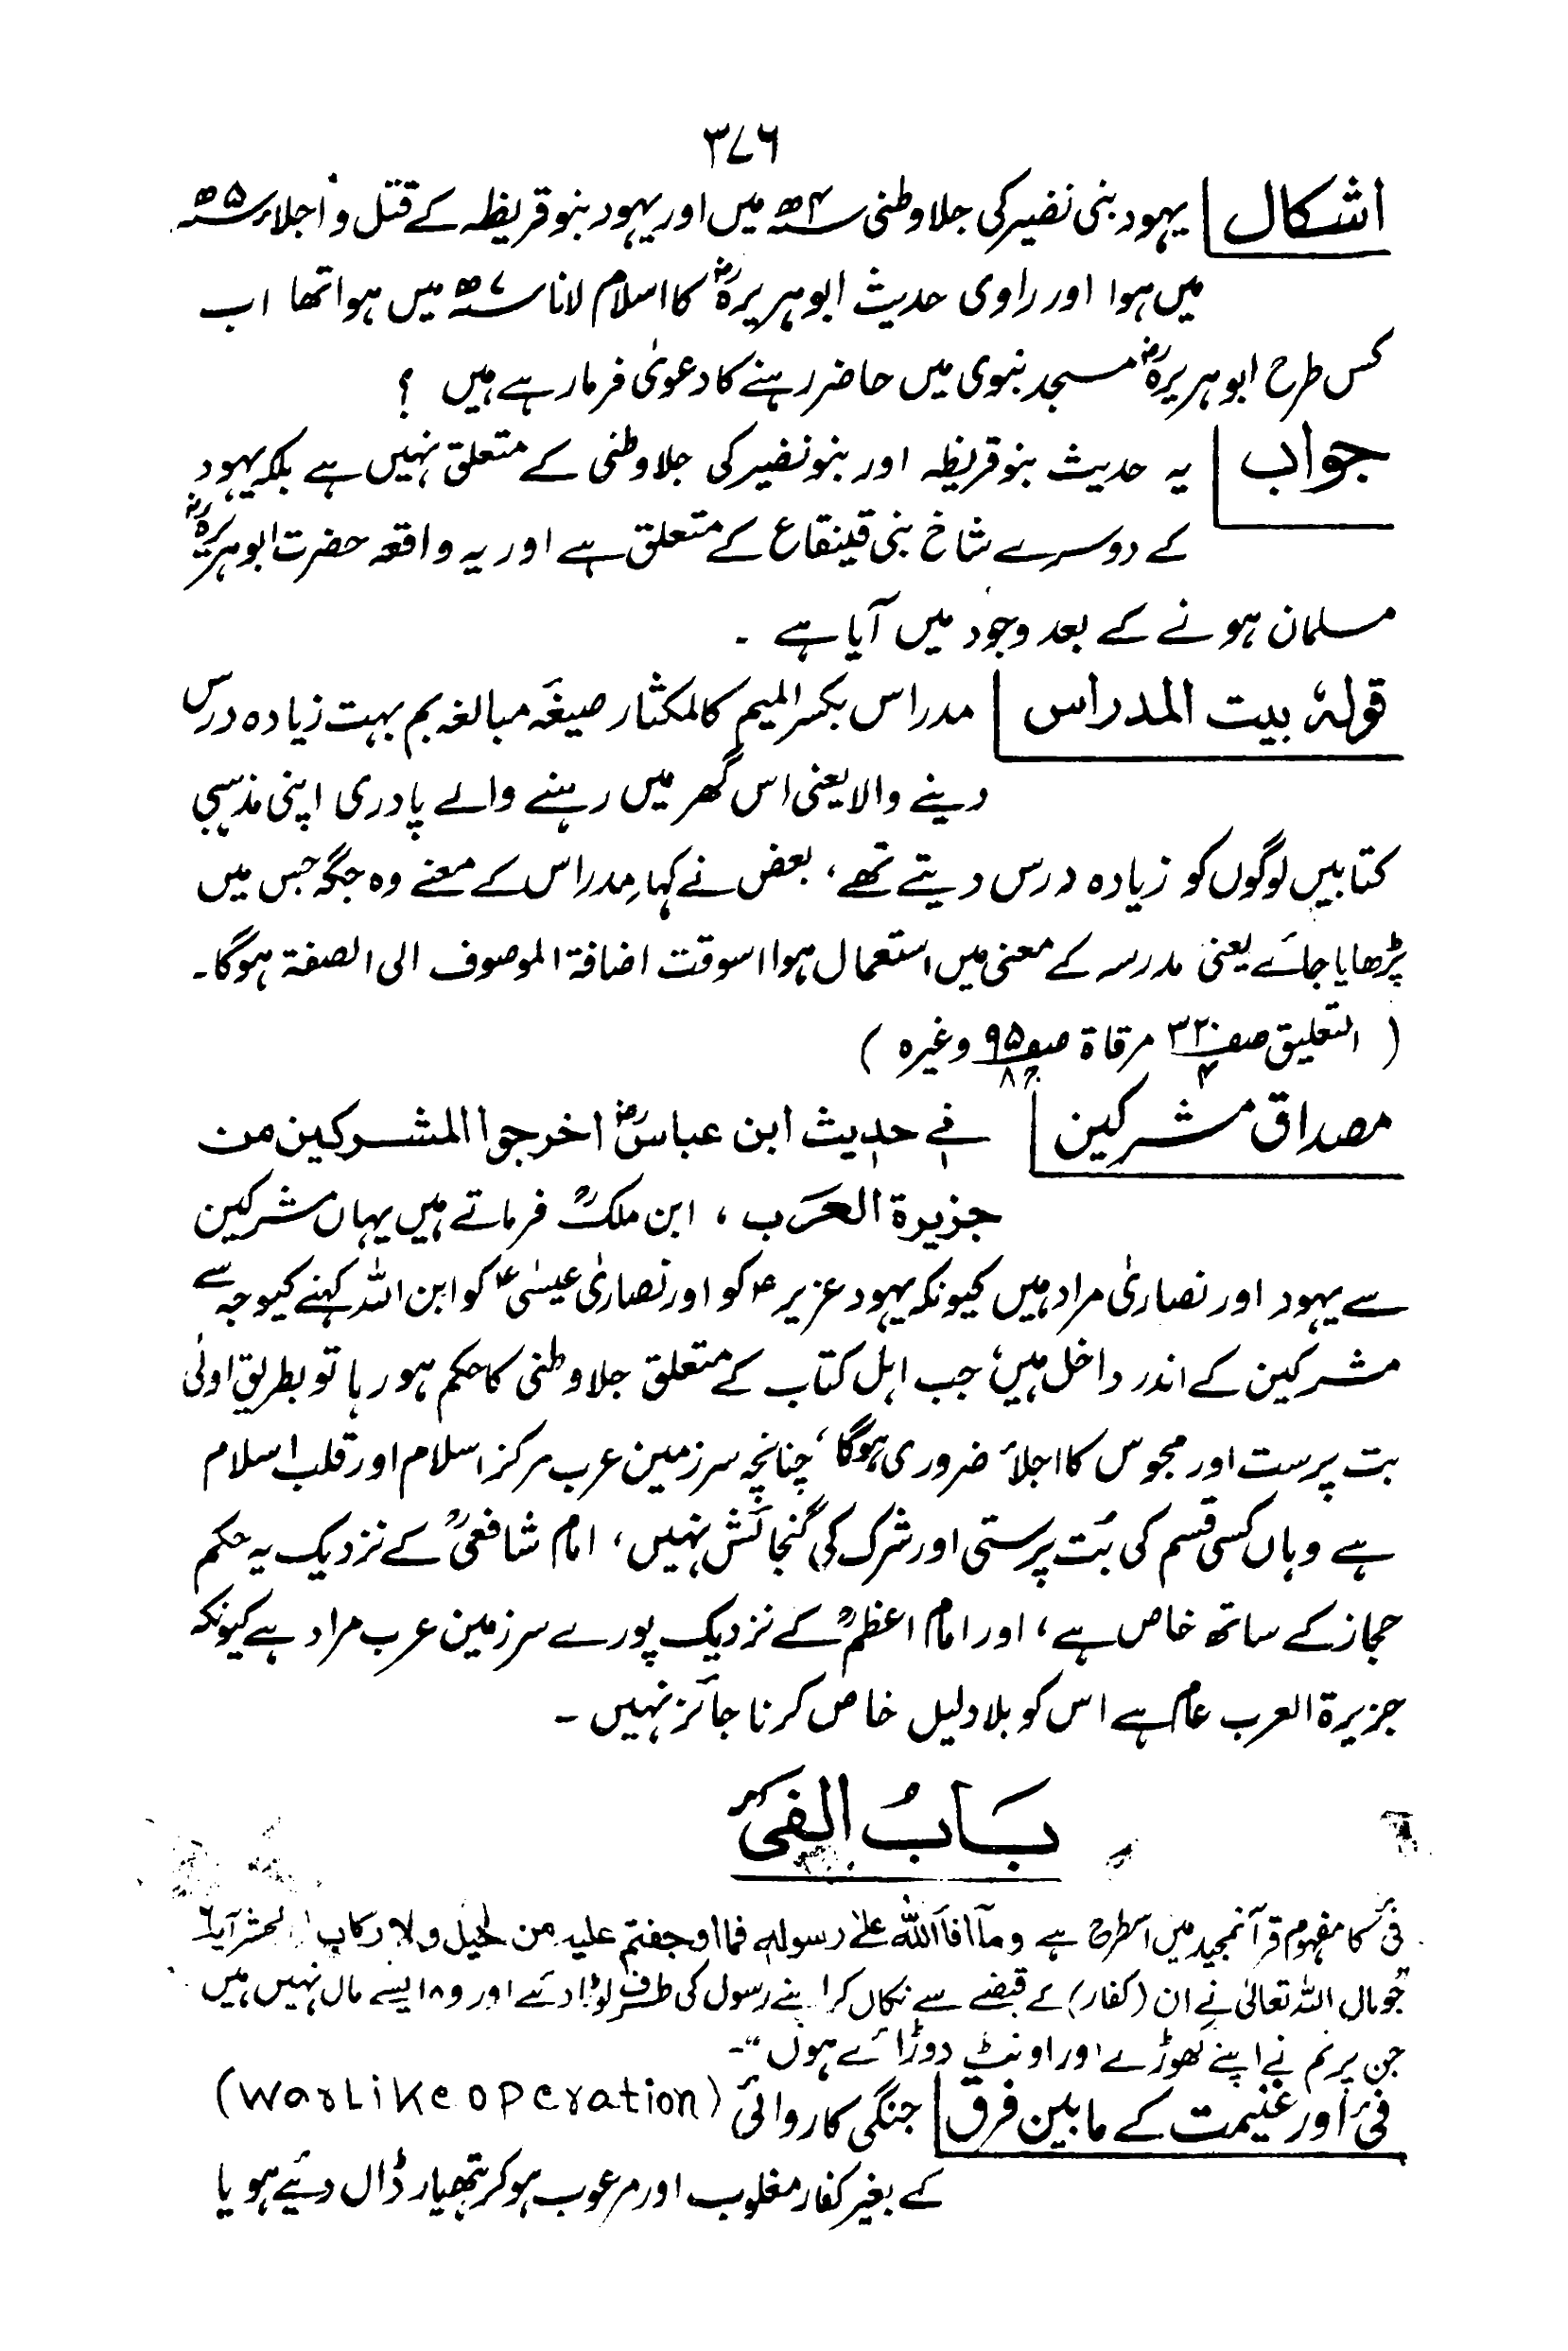 ۳۷۶
اشکال یہود بنی نضیر کی جلاوطنی ۴ھ میں اور یہود بنو قریظہ کے قتل و اجلاء ۵ھ
میں ہوا اور راوی حدیث ابو ہریرہؓ کا اسلام لانا ۷ھ میں ہوا تھا اب
کس طرح ابو ہریرہؓ مسجد نبوی میں حاضر رہنے کا دعویٰ فرما رہے ہیں ؟
جواب یہ حدیث بنو قریظہ اور بنو نضیر کی جلاوطنی کے متعلق نہیں ہے بلکہ یہود
کے دوسرے شاخ بنی قینقاع کے متعلق ہے اور یہ واقعہ حضرت ابو ہریرہؓ
مسلمان ہونے کے بعد وجود میں آیا ہے ۔
قولہٗ بیت المدراس مدراس بکسر المیم کالمکثار صیغۂ مبالغہ بم بہت زیادہ درس
دینے والا یعنی اس گھر میں رہنے والے پادری اپنی مذہبی
کتابیں لوگوں کو زیادہ درس دیتے تھے، بعض نے کہا مِدراس کے معنے وہ جگہ جس میں
پڑھایا جائے یعنی مدرسہ کے معنی میں استعمال ہوا اسوقت اضافۃ الموصوف الی الصفۃ ہوگا۔
( التعلیق صفـ ۳۲۰/۴ مرقاۃ صفـ ۹۵/ج۸ وغیرہ )
مصداق مشرکین فی حدیث ابن عباسؓ اخرجوا المشرکین من
جزیرۃ العرب ، ابن ملکؒ فرماتے ہیں یہاں مشرکین
سے یہود اور نصاریٰ مراد ہیں کیونکہ یہود عزیرؑ کو اور نصاریٰ عیسٰیؑ کو ابن اللہ کہنے کیوجہ سے
مشرکین کے اندر داخل ہیں، جب اہل کتاب کے متعلق جلاوطنی کا حکم ہو رہا تو بطریق اولٰی
بت پرست اور مجوس کا اجلاء ضروری ہوگا، چنانچہ سرزمین عرب مرکز اسلام اور قلب اسلام
ہے وہاں کسی قسم کی بُت پرستی اور شرک کی گنجائش نہیں، امام شافعیؒ کے نزدیک یہ حکم
حجاز کے ساتھ خاص ہے، اور امام اعظمؒ کے نزدیک پورے سرزمین عرب مراد ہے کیونکہ
جزیرۃ العرب عام ہے اس کو بلا دلیل خاص کرنا جائز نہیں ۔
بَابُ الفیٔ
فئ کا مفہوم قرآنمجید میں اسطرح ہے وما آفاء اللہ علیٰ رسولہ فما اوجفتم علیہ من خیل ولا رکاب الحشر آیۃ ۶
"جو مال اللہ تعالیٰ نے ان (کفار) کے قبضے سے نکال کر اپنے رسول کی طرف لوٹا دئے اور وہ ایسے مال نہیں ہیں
جن پر تم نے اپنے گھوڑے اور اونٹ دوڑائے ہوں"۔
فئ اور غنیمت کے مابین فرق جنگی کاروائی (Warlike operation)
کے بغیر کفار مغلوب اور مرعوب ہو کر ہتھیار ڈال دیئے ہو یا